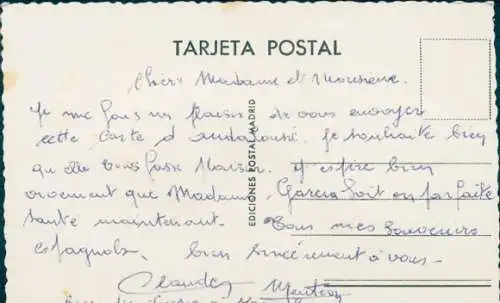 TARJETA POSTAL
Chère Madame et Monsieur.
Je me fais un plaisir de vous envoyer
cette carte d'andalousie. Je souhaite bien
qu elle vous fasse plaisir. J'espère bien
vivement que Madame Garcia soit en parfaite
santé maintenant. Tous mes souvenirs
espagnols, bien sincèrement à vous-
EDICIONES POSTAL MADRID